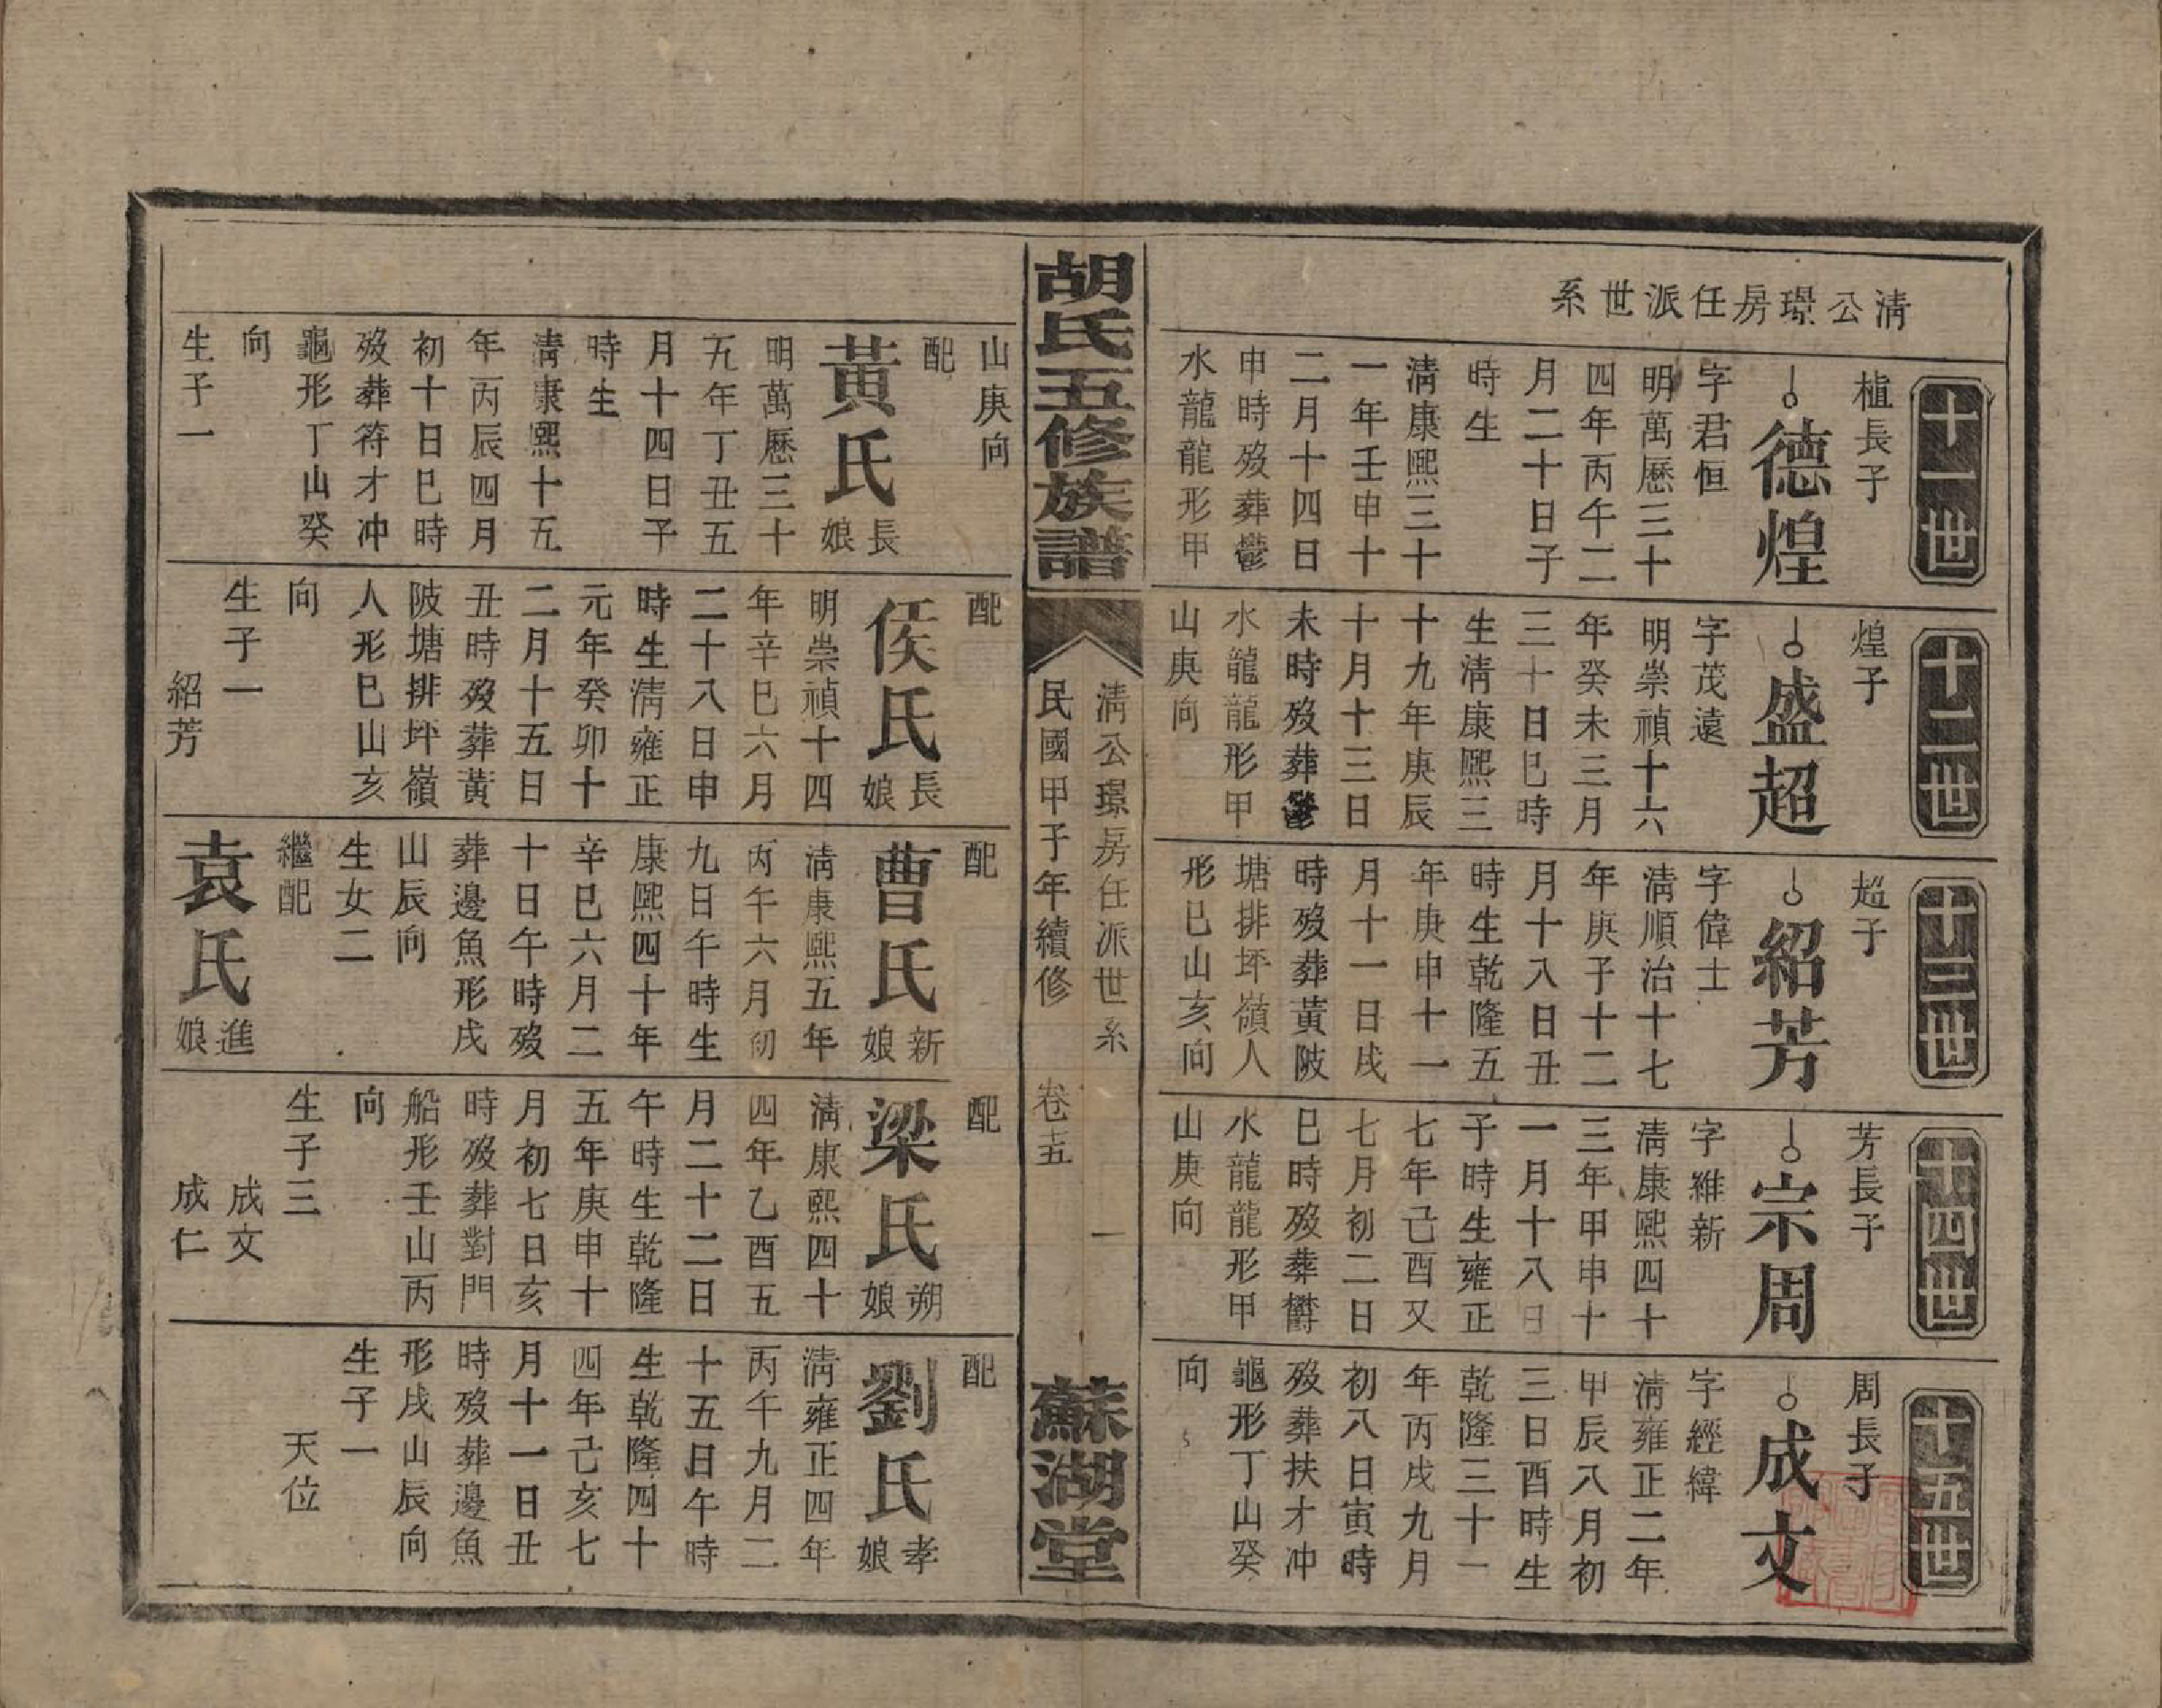 清公璟房任派世系
十一世
植長子
德煌
字君恒
明萬曆三十
四年丙午二
月二十日子
時生
清康熙三十
一年壬申十
二月十四日
申時殁葬鬱
水龍龍形甲
山庚向
配
黃氏
長娘
明萬曆三十
五年丁丑五
月十四日子
時生
清康熙十五
年丙辰四月
初十日巳時
殁葬符才冲
龜形丁山癸
向
生子一
十二世
煌子
盛超
字茂遠
明崇禎十六
年癸未三月
三十日巳時
生清康熙三
十九年庚辰
十月十三日
未時殁葬鬱
水龍龍形甲
山庚向
配
侯氏
長娘
明崇禎十四
年辛巳六月
二十八日申
時生清雍正
元年癸卯十
二月十五日
丑時殁葬黃
陂塘排坪嶺
人形巳山亥
向
生子一
紹芳
十三世
超子
紹芳
字偉士
清順治十七
年庚子十二
月十八日丑
時生乾隆五
年庚申十一
月十一日戌
時殁葬黃陂
塘排坪嶺人
形巳山亥向
配
曹氏
新娘
清康熙五年
丙午六月初
九日午時生
康熙四十年
辛巳六月二
十日午時殁
葬邊魚形戌
山辰向
生女二
繼配
袁氏
進娘
十四世
芳長子
宗周
字維新
清康熙四十
三年甲申十
一月十八日
子時生雍正
七年己酉又
七月初二日
巳時殁葬欝
水龍龍形甲
山庚向
配
梁氏
朔娘
清康熙四十
四年乙酉五
月二十二日
午時生乾隆
五年庚申十
月初七日亥
時殁葬對門
船形壬山丙
向
生子三
成文
成仁
十五世
周長子
成文
字經緯
清雍正二年
甲辰八月初
三日酉時生
乾隆三十一
年丙戌九月
初八日寅時
殁葬扶才冲
龜形丁山癸
向
配
劉氏
孝娘
清雍正四年
丙午九月二
十五日午時
生乾隆四十
四年己亥七
月十一日丑
時殁葬邊魚
形戌山辰向
生子一
天位
胡氏五修族譜
清公璟房任派世系 一
民國甲子年續修 卷十五
蘇湖堂